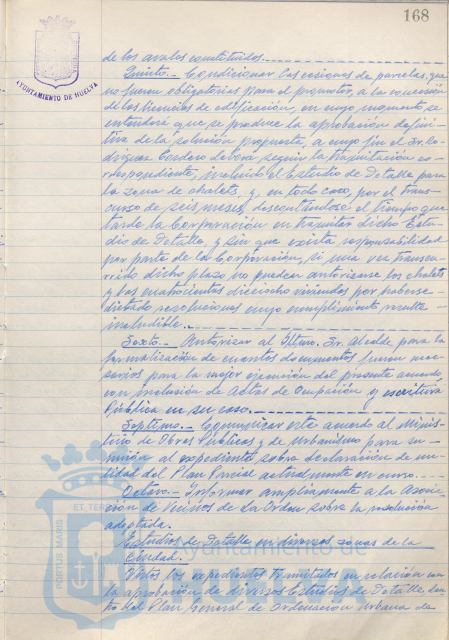 168
AYUNTAMIENTO DE HUELVA
de los avales constituidos.
Quinto.- Condicionar las cesiones de parcelas, que
no fueran obligatorias para el promotor, a la concesión
de las licencias de edificación, en cuyo momento se
entenderá que se produce la aprobación defini-
tiva de la solución propuesta, a cuyo fin el Sr. Ro-
dríguez Cordero deberá seguir la tramitación co-
rrespondiente, incluido el Estudio de Detalle para
la zona de chalets y, en todo caso, por el trans-
curso de seis meses, descontándose el tiempo que
tarde la Corporación en tramitar dicho Estu-
dio de Detalle, y sin que exista responsabilidad
por parte de la Corporación, si una vez transcu-
rrido dicho plazo, no puedan autorizarse los chalets
y las cuatrocientas dieciocho viviendas por haberse
dictado resoluciones cuyo cumplimiento resulte
ineludible.
Sexto.- Autorizar al Iltmo. Sr. Alcalde para la
formalización de cuantos documentos fueran nece-
sarios para la mejor ejecución del presente acuerdo,
con inclusión de Actas de Ocupación y escritura
Pública en su caso.
Septimo.- Comunicar este acuerdo al Minis-
terio de Obras Públicas y de Urbanismo para su
misión al expediente sobre declaración de nu-
lidad del Plan Parcial actualmente en curso.
Octavo.- Informar ampliamente a la Asocia-
ción de Vecinos de La Orden sobre la resolución
adoptada.
Estudios de Detalle en diversas zonas de la
Ciudad.
Vistos los expedientes tramitados en relación con
la aprobación de diversos Estudios de Detalle den-
tro del Plan General de Ordenación Urbana de
PORTUS MARIS ET TERRAE
Ayuntamiento de
HUELVA